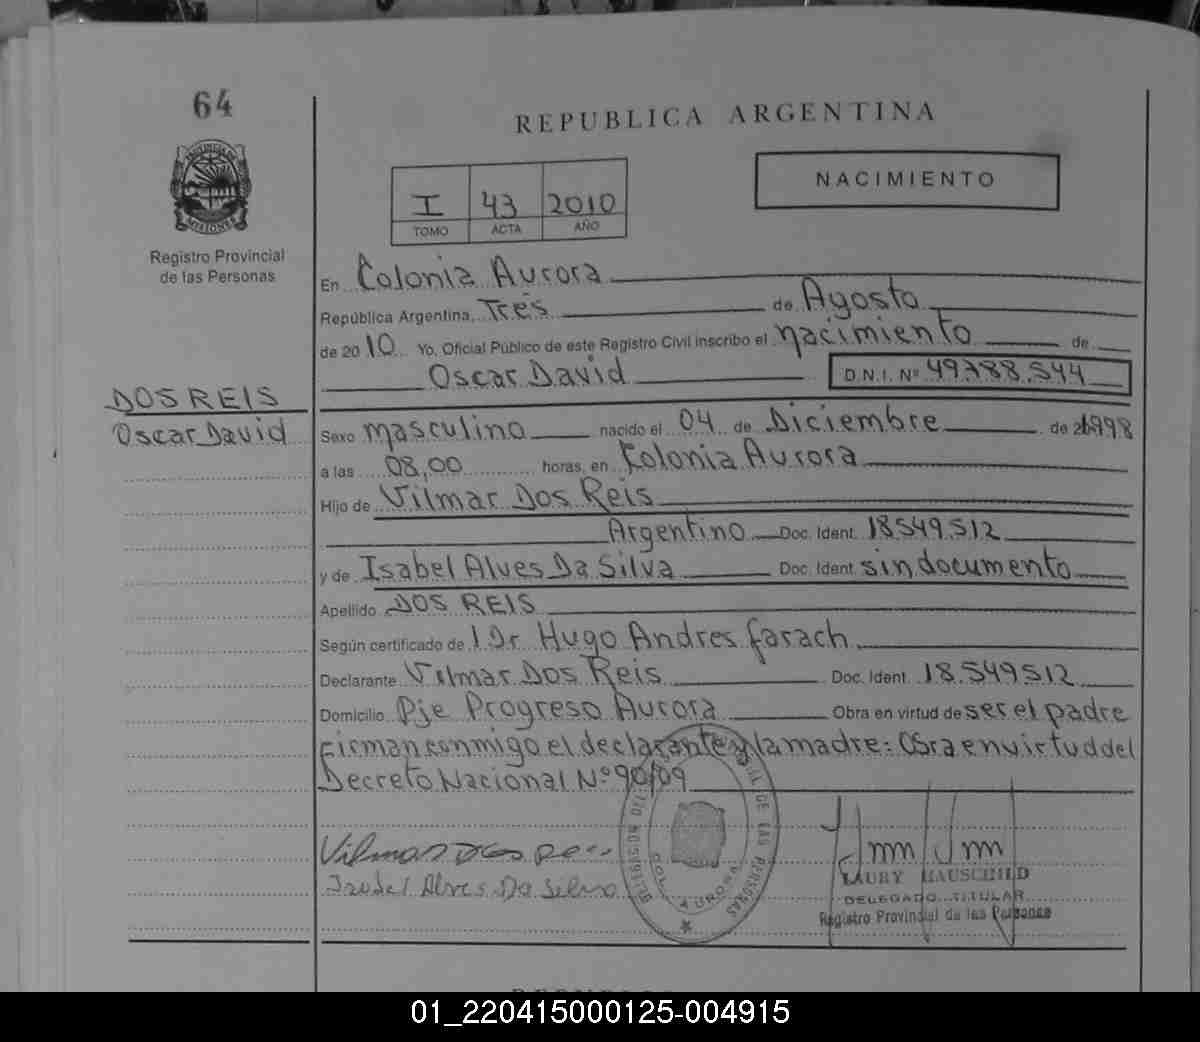 64
REPUBLICA ARGENTINA
NACIMIENTO
I 43 2010
TOMO ACTA AÑO
PROVINCIA DE MISIONES
Registro Provincial
de las Personas
En Colonia Aurora
República Argentina, Tres de Agosto
de 2010 Yo, Oficial Público de este Registro Civil inscribo el nacimiento de
Oscar David D.N.I. Nº 49.788.544
DOS REIS
Oscar David
Sexo masculino nacido el 04 de Diciembre de 1998
a las 08,00 horas, en Colonia Aurora
Hijo de Vilmar Dos Reis
Argentino Doc. Ident. 18.549.512
y de Isabel Alves Da Silva Doc. Ident. sin documento
Apellido DOS REIS
Según certificado de l Dr Hugo Andres Farach
Declarante Vilmar Dos Reis Doc. Ident. 18.549512
Domicilio Pje Progreso Aurora Obra en virtud de ser el padre
Firman conmigo el declarante y la madre: Obra en virtud del
Decreto Nacional Nº 90/09
Vilmar Dos Reis
Isabel Alves Da Silva
DELEGACION DEL REGISTRO PROVINCIAL DE LAS PERSONAS
COL. AURORA
LAURY HAUSCHILD
DELEGADO TITULAR
Registro Provincial de las Personas
01_220415000125-004915